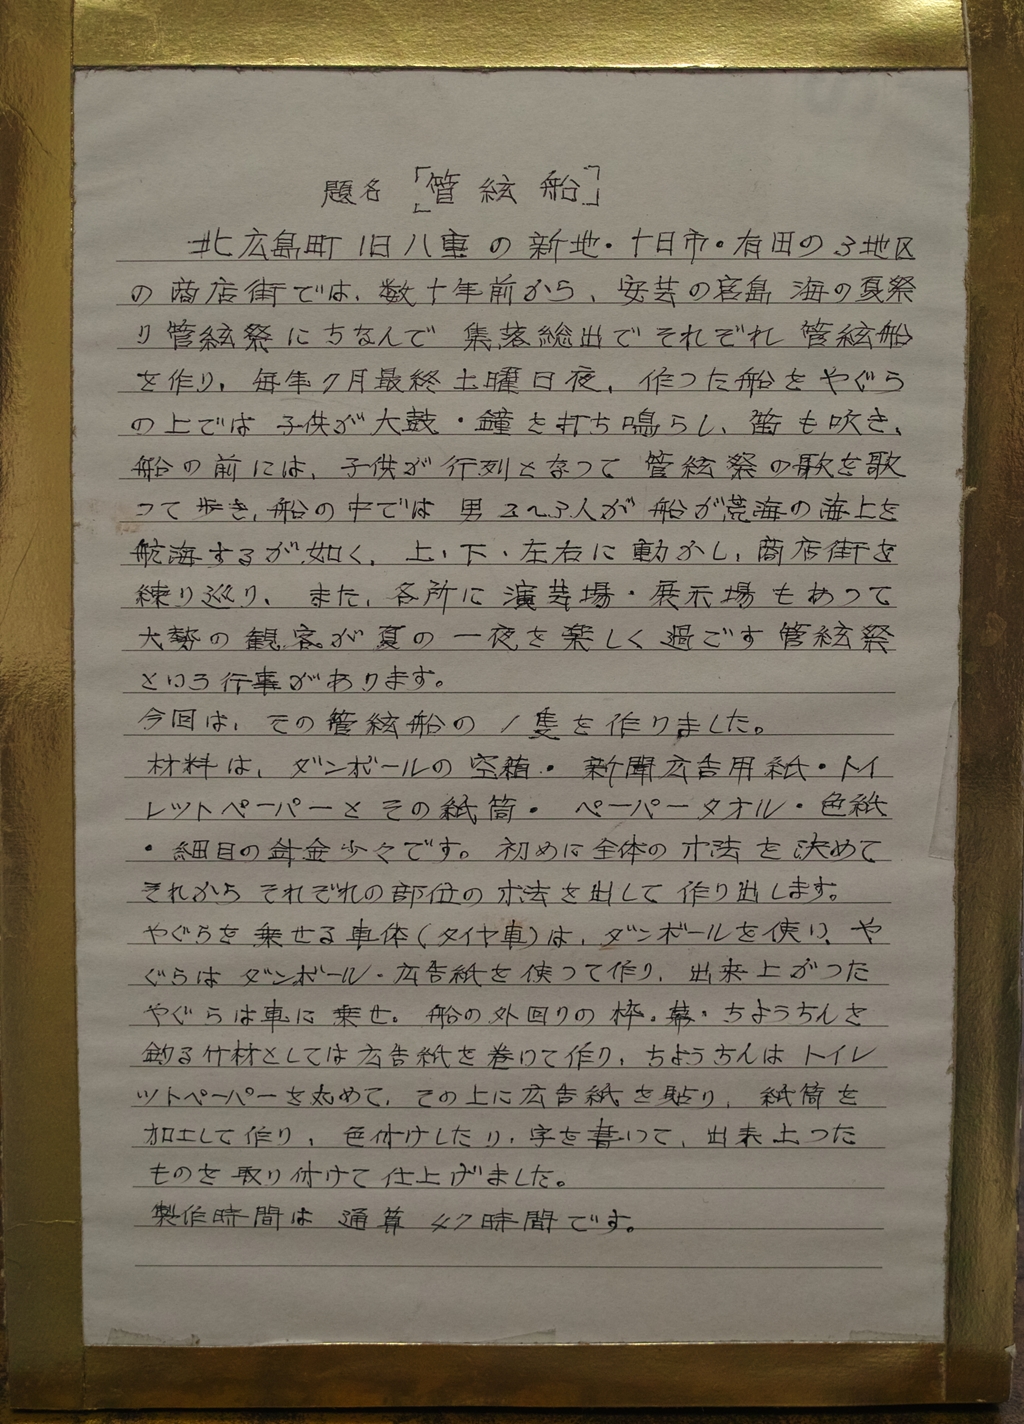 題名「管絃船」
北広島町旧八重の新地・十日市・有田の3地区
の商店街では、数十年前から、安芸の宮島 海の夏祭
り管絃祭にちなんで 集落総出でそれぞれ 管絃船
を作り、毎年7月最終土曜日夜、作った船をやぐら
の上では 子供が大鼓・鐘を打ち鳴らし、笛も吹き、
船の前には、子供が行列となって 管絃祭の歌を歌
って歩き、船の中では 男 2〜3人が 船が荒海の海上を
航海するが如く、上・下・左右に動かし、商店街を
練り巡り、また、各所に 演芸場・展示場もあって
大勢の観客が夏の一夜を楽しく過ごす 管絃祭
という行事があります。
今回は、その管絃船の1隻を作りました。
材料は、ダンボールの空箱・新聞広告用紙・トイ
レットペーパーとその紙筒・ペーパータオル・色紙
・細目の針金少々です。初めに全体の寸法を決めて
それからそれぞれの部位の寸法を出して作り出します。
やぐらを乗せる車体(タイヤ車)は、ダンボールを使い、や
ぐらはダンボール・広告紙を使って作り、出来上がった
やぐらは車に乗せ。船の外回りの枠・幕・ちようちんを
釣る竹材としては広告紙を巻いて作り、ちようちんはトイレ
ットペーパーを丸めて、その上に広告紙を貼り、紙筒を
加工して作り、色付けしたり、字を書いて、出来上った
ものを取り付けて仕上げました。
製作時間は 通算 47時間です。